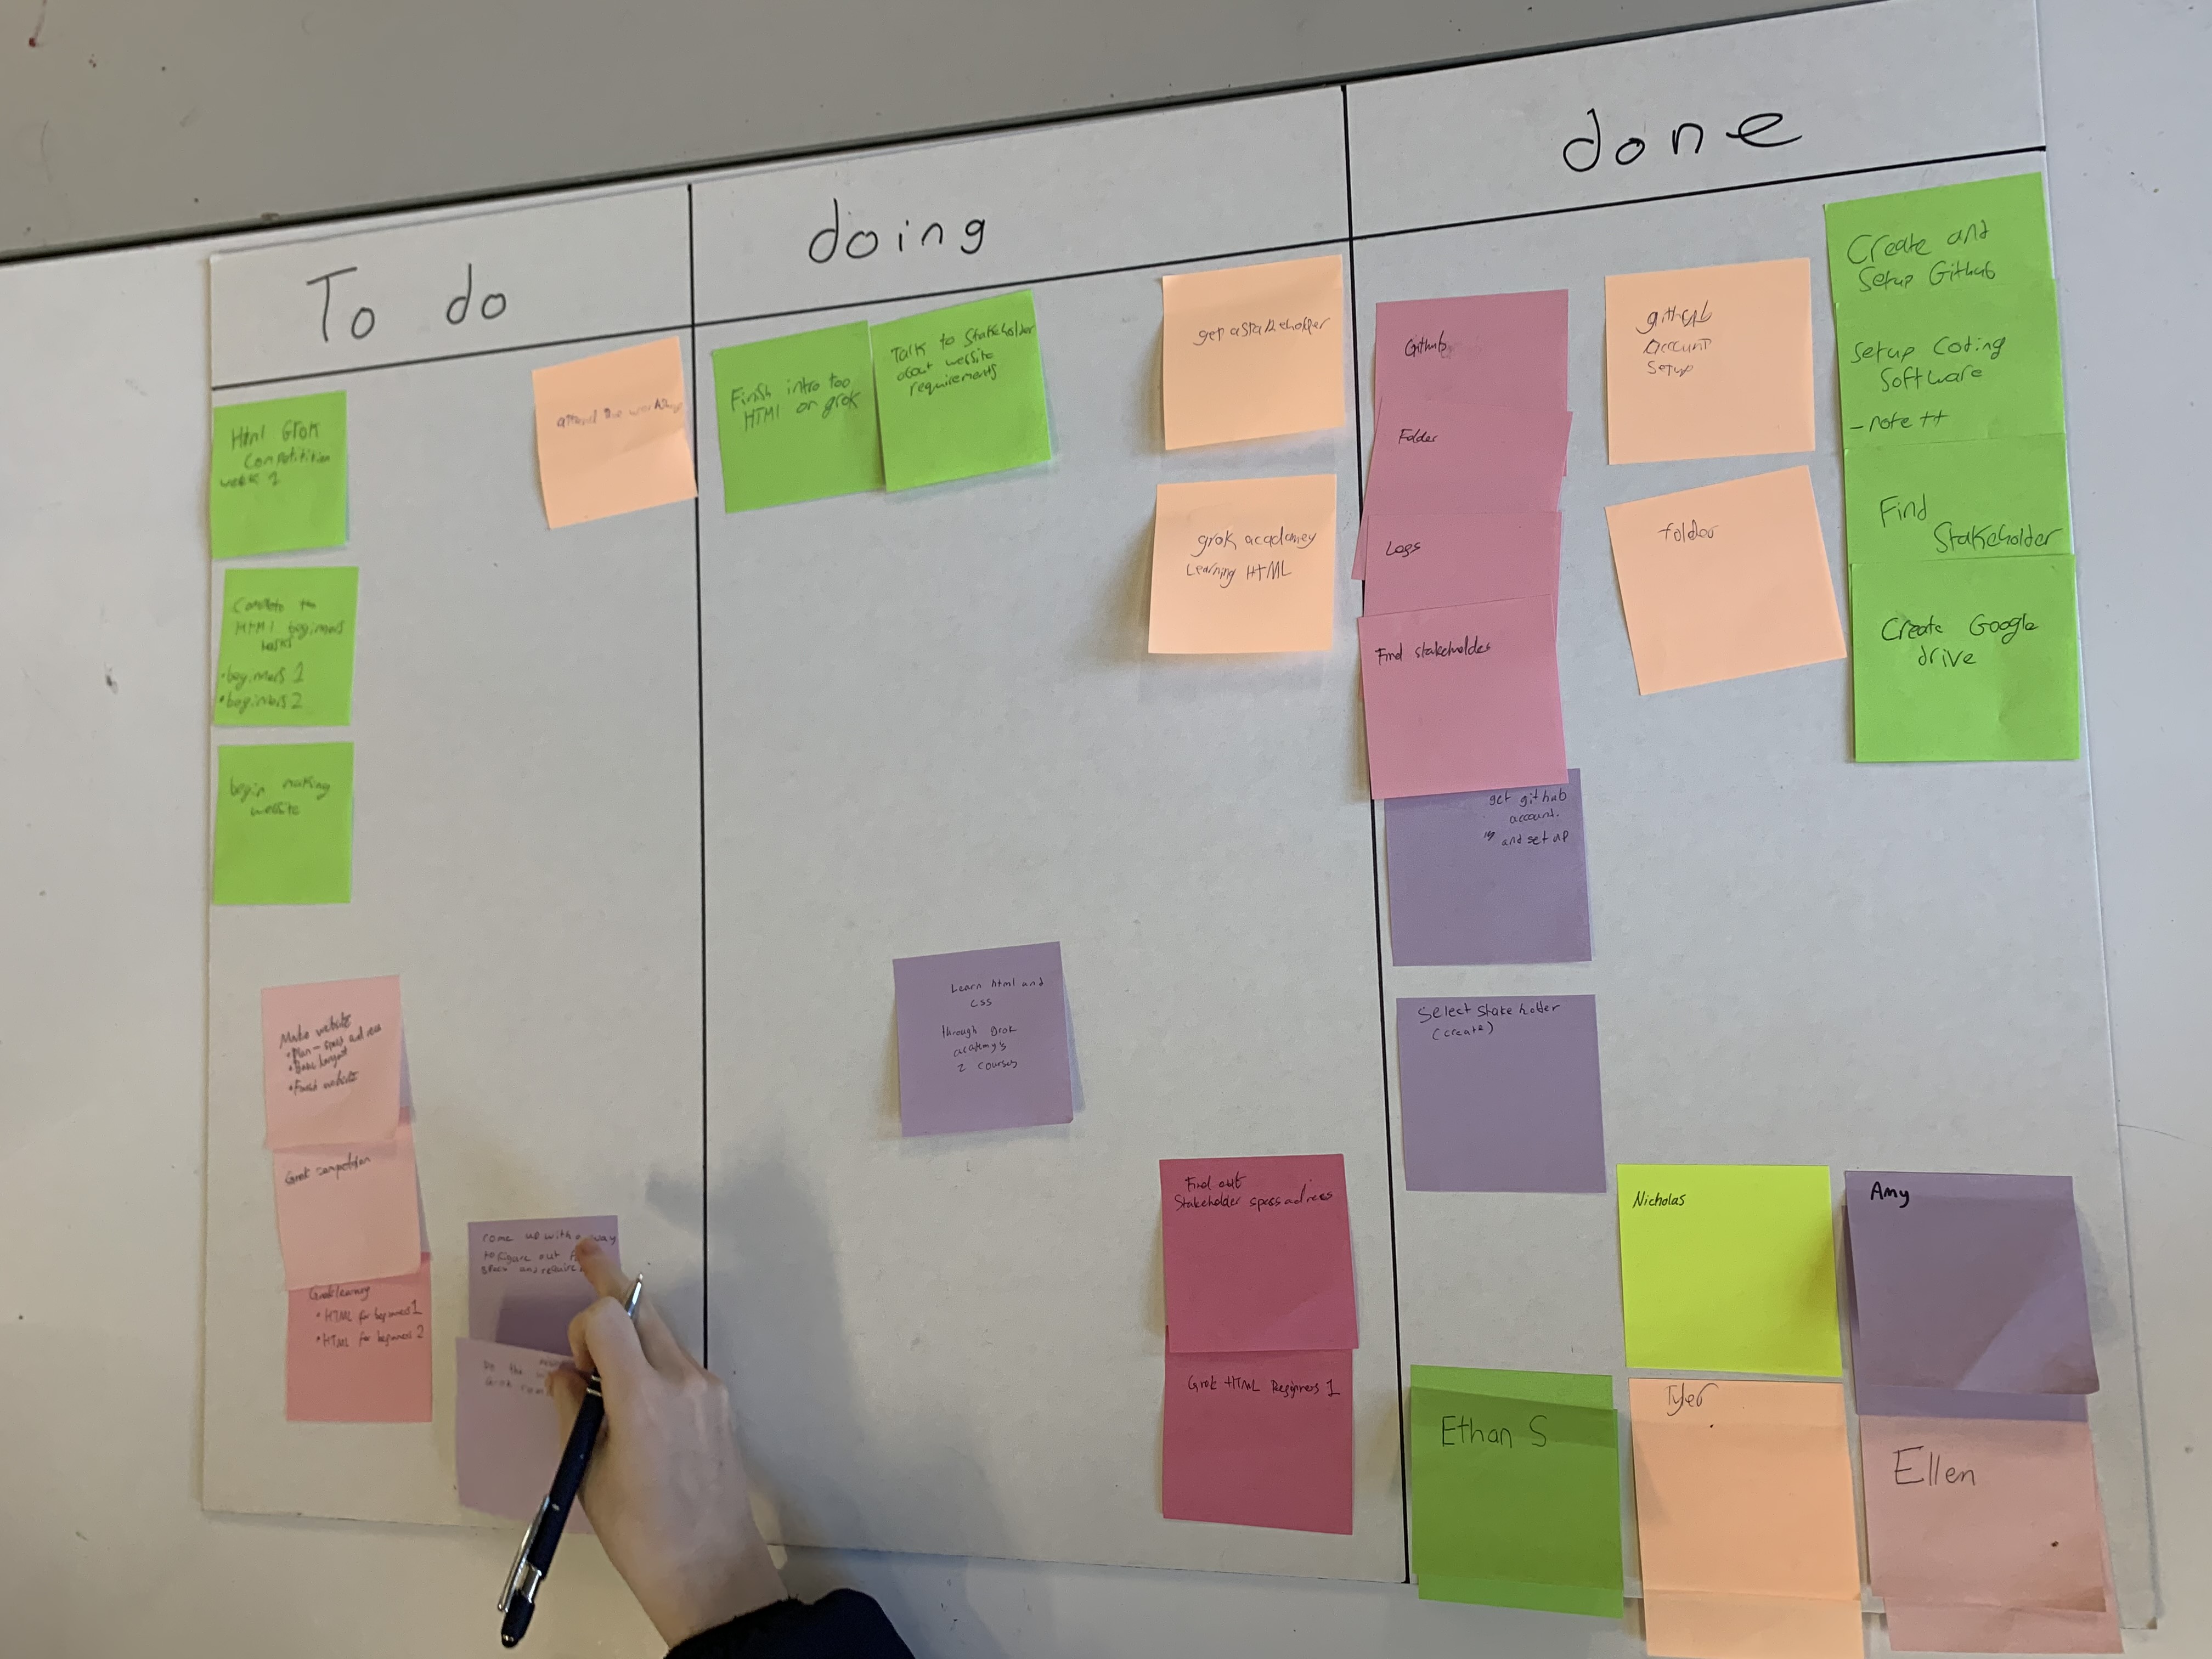 To do
Html Grok
Competition
week 1
Complete the
HTML beginners
• beginners 1
• beginners 2
begin making
website
Make website
• Plan - specs ad recs
• Basic layout
• Finish website
Grok competition
Grok learning
• HTML for beginners 1
• HTML for beginners 2
come up with a way
to figure out
specs and require
Do the
doing
Finish intro too
HTML on grok
Talk to Stakeholder
about website
requirements
get a stakeholder
grok academey
Learning HTML
Learn html and
css
through Grok
academy's
2 courses
Find out
Stakeholder specs ad recs
Grok HTML Beginners 1
done
Github
Folder
Logs
Find stakeholder
get github
account.
and set up
Select Stake holder
(create)
github
account
setup
folder
Create and
Setup Github
Setup Coding
Software
- note ++
Find
Stakeholder
Create Google
drive
Ethan S
Nicholas
Tyler
Amy
Ellen